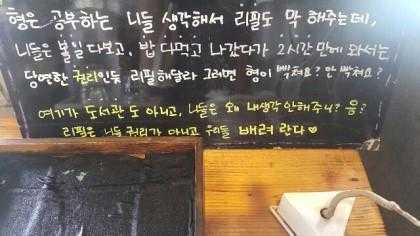 형은 공부하는 니들 생각해서 리필도 막 해주는데,
니들은 볼일 다보고, 밥 다먹고 나갔다가 2시간 만에 와서는
당연한 권리인듯 리필해달라 그러면 형이 빡쳐요? 안 빡쳐요?
여기가 도서관 도 아니고, 니들은 왜 내생각 안해주니? 응?
리필은 니들 권리가 아니고 우리들 배려 란다♡